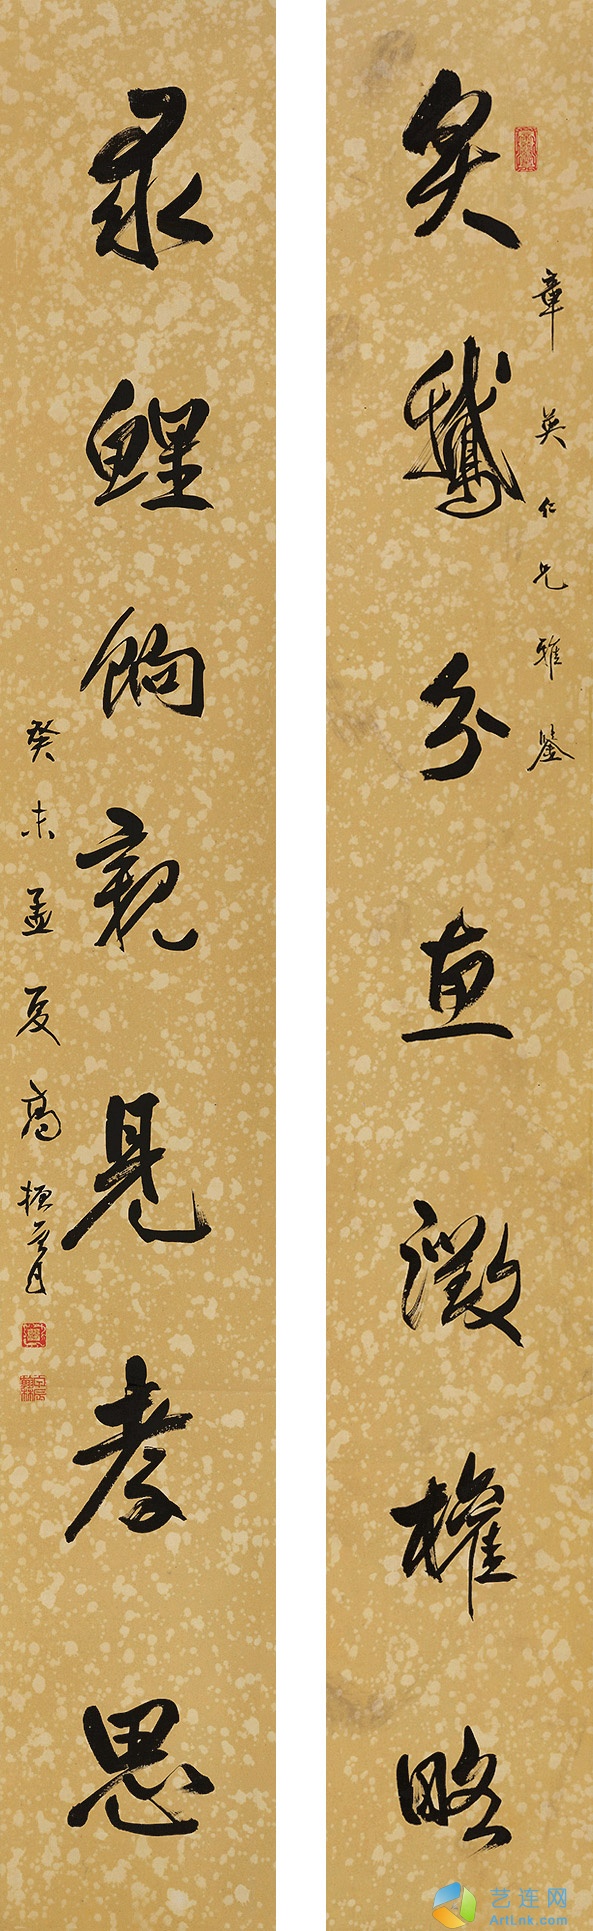 章英仁兄雅鑒
炙鵝分直徵權略
求鯉餉親見孝思
癸未孟夏高振霄
艺连网
ArtLnk.com